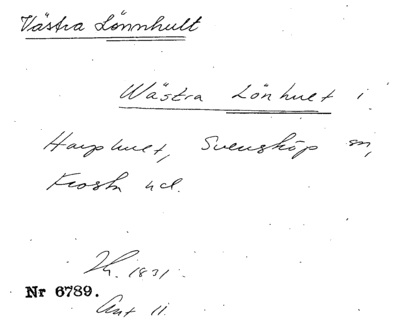 Västra Lönnhult
Wästra Lönhult i
Harphult, Svensköp sn,
Frosta hd.
1831
Nr 6789.
Ant 11.